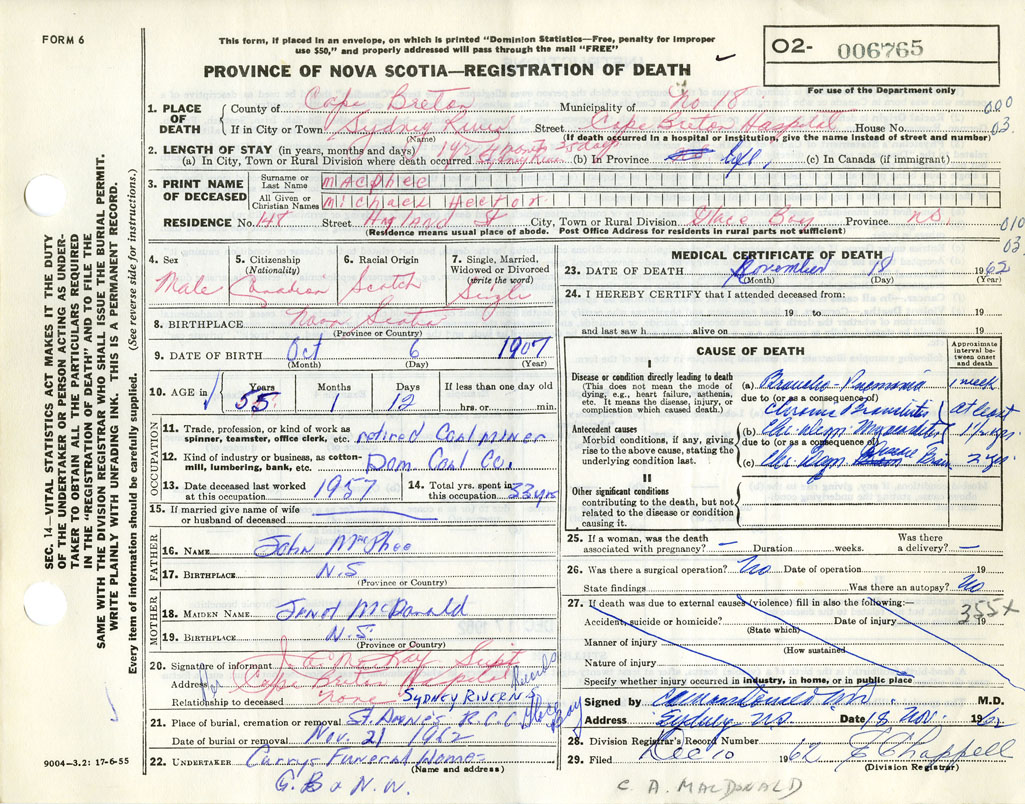 FORM 6
This form, if placed in an envelope, on which is printed "Dominion Statistics—Free, penalty for improper
use $50," and properly addressed will pass through the mail "FREE"
O2- 006765
PROVINCE OF NOVA SCOTIA—REGISTRATION OF DEATH
For use of the Department only
1. PLACE OF DEATH
County of Cape Breton Municipality of No 18
000
If in City or Town Sydney River Street Cape Breton Hospital House No.
03.
(Name) (If death occurred in a hospital or institution, give the name instead of street and number)
2. LENGTH OF STAY (in years, months and days)
(a) In City, Town or Rural Division where death occurred Sydney River (b) In Province life, (c) In Canada (if immigrant)
3. PRINT NAME OF DECEASED
Surname or Last Name MacPhee
All Given or Christian Names Michael Hector
RESIDENCE No. 148 Street Highland St City, Town or Rural Division Glace Bay Province N.S.
010
03
(Residence means usual place of abode. Post Office Address for residents in rural parts not sufficient)
4. Sex Male
5. Citizenship (Nationality) Canadian
6. Racial Origin Scotch
7. Single, Married, Widowed or Divorced (write the word) Single
8. BIRTHPLACE Nova Scotia
(Province or Country)
9. DATE OF BIRTH Oct 6 1907
(Month) (Day) (Year)
10. AGE in Years 55 Months 1 Days 12 If less than one day old hrs. or min.
OCCUPATION
11. Trade, profession, or kind of work as spinner, teamster, office clerk, etc. retired Coal miner
12. Kind of industry or business, as cotton-mill, lumbering, bank, etc. Dom Coal Co.
13. Date deceased last worked at this occupation 1957
14. Total yrs. spent in this occupation 33 yrs
15. If married give name of wife or husband of deceased
FATHER
16. NAME John McPhee
17. BIRTHPLACE N.S
(Province or Country)
MOTHER
18. MAIDEN NAME Janet McDonald
19. BIRTHPLACE N.S.
(Province or Country)
20. Signature of informant Supt
Address Cape Breton Hospital
Relationship to deceased none Sydney River NS
21. Place of burial, cremation or removal St. Anne's R.C.C. Glace Bay
Date of burial or removal Nov. 21 1962
22. UNDERTAKER Currys Funeral Home
(Name and address)
G. B & N. W.
9004—3.2: 17-6-55
SEC. 14—VITAL STATISTICS ACT MAKES IT THE DUTY
OF THE UNDERTAKER OR PERSON ACTING AS UNDER-
TAKER TO OBTAIN ALL THE PARTICULARS REQUIRED
IN THE "REGISTRATION OF DEATH" AND TO FILE THE
SAME WITH THE DIVISION REGISTRAR WHO SHALL ISSUE THE BURIAL PERMIT.
WRITE PLAINLY WITH UNFADING INK. THIS IS A PERMANENT RECORD.
Every item of information should be carefully supplied. (See reverse side for instructions.)
MEDICAL CERTIFICATE OF DEATH
23. DATE OF DEATH November 18 1962
(Month) (Day) (Year)
24. I HEREBY CERTIFY that I attended deceased from:
19 to 19
and last saw h alive on 19
CAUSE OF DEATH
Approximate interval between onset and death
I
Disease or condition directly leading to death
(This does not mean the mode of dying, e.g., heart failure, asthenia, etc. It means the disease, injury, or complication which caused death.)
(a) Broncho-Pneumonia 1 week
due to (or as a consequence of)
Chronic Bronchitis at least
Antecedent causes
Morbid conditions, if any, giving rise to the above cause, stating the underlying condition last.
(b) Chr Degen Myocarditis 1½ yrs.
due to (or as a consequence of)
(c) Chr Degen Brain 2 yrs.
II
Other significant conditions
contributing to the death, but not related to the disease or condition causing it.
25. If a woman, was the death associated with pregnancy? — Duration weeks. Was there a delivery? —
26. Was there a surgical operation? No Date of operation 19
State findings Was there an autopsy? No
27. If death was due to external causes (violence) fill in also the following:—
355X
Accident, suicide or homicide? Date of injury 19
(State which)
Manner of injury
(How sustained
Nature of injury
Specify whether injury occurred in industry, in home, or in public place
Signed by C A MacDonald M.D.
Address Sydney NS. Date 18 Nov. 1962
28. Division Registrar's Record Number
29. Filed Dec 10 1962 E Chappell
(Division Registrar)
C. A. MACDONALD